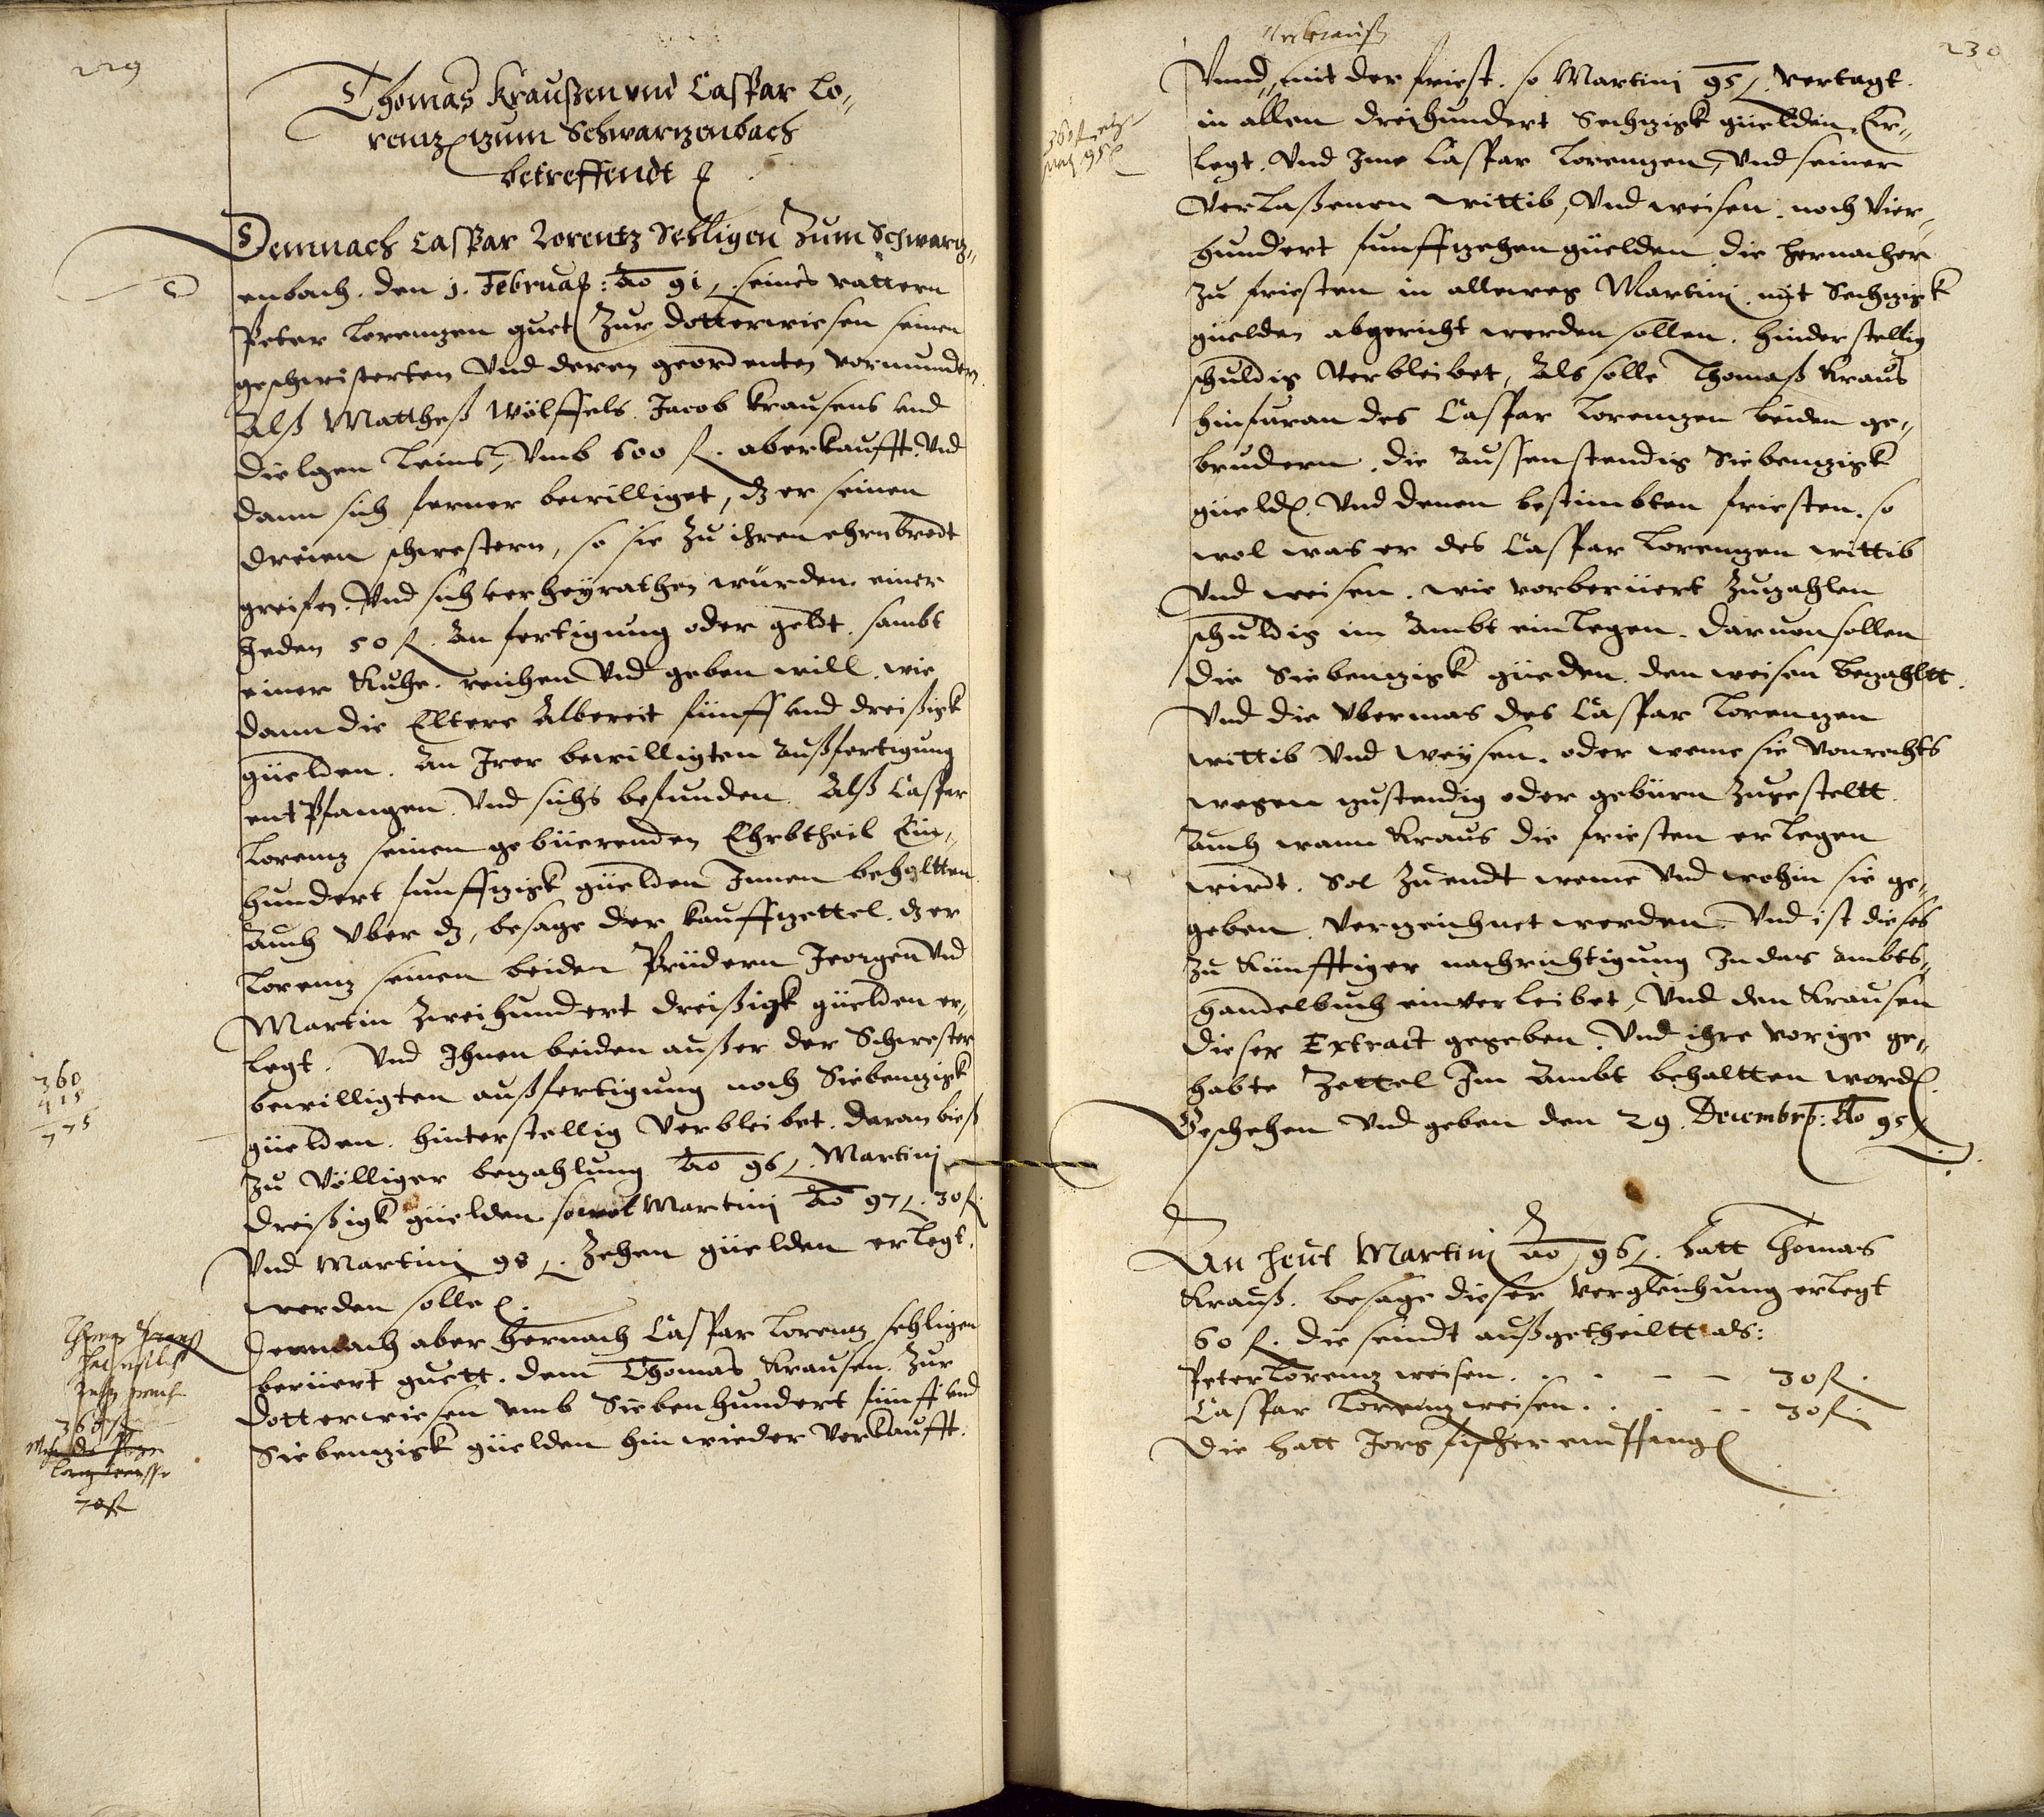 229
Thomas Kraußen vnd Caspar Lo„
rentz zum Schwartzenbach
betreffendt
Demnach Caspar Lorentz Sehligen Zum Schwartz„
enbach. den j. Februarij: ao 91. seines vattern
Peter Lorentzen guet Zur dotterwiesen seinen
geschwisterten Vnd deren geordenten vormundern
Alß Mattheß Wölffels. Jacob Krausens vnd
Vmb 600 fl. aberkaufft. Vnd
dann sich ferner bewilliget, dz er seinen
dreien schwestern, so sie Zu ihren ehrn
greifen. Vnd sich verheÿrathen würden. einer
Jeden 50 fl. An fertigung oder geldt. sambt
einer Kuhe. reichen Vnd geben will. wie
dann die Eltere Albereit fünff vnd dreißigk
güelden. An Irer bewilligten Außfertigung
entPfangen. Vnd sichs befunden. Alß Caspar
Lorentz seinen gebüerenden Ehrbtheil Ein„
hundert funffzigk güelden Innen behaltten.
Auch Vber dz, besage der kauffzettel. dz er
Lorentz seinen beiden Prüdern Jeorgen Vnd
Martin Zweihundert dreißigk güelden er„
legt. Vnd Ihnen beiden außer der Schwester
bewilligten außfertigung noch Siebentzigk
güelden. hinterstellig Verbleibet. daran bieß
Zu Völliger bezahlung ao 96. Martinj
dreißigk güelden sowol Martinj ao 97. 30 fl.
Vnd Martinj 98. Zehen güelden erlegt.
werden solle.
Demnach aber hernach Caspar Lorentz sehligen
berüert guett. dem Thomas Krausen. Zur
dotterwiesen vmb Siebenhundert fünff vnd
Siebentzigk güelden hinwieder Verkaufft.
360
415
775
Thomas Krauß
360
70 fl
230
Vnnd mit der friest. so Martinj 95. vertagt.
in allen dreihundert Sechzigk güelden. Er„
legt. Vnd Ime Caspar Lorentzen, Vnd seiner
Verlaßenen wittib, Vnd weisen. noch Vier„
hundert funffzehen güelden die hernacher
Zu friesten in allewegs Martinj mit Sechzigk
güelden abgericht werden sollen. hinderstellig
schuldig Verbleibet, Als solle Thomaß Kraus
hinfuran des Caspar Lorentzen beiden ge„
brudern. die Aussenstendig Siebentzigk
güelden. Vnd denen bestimbten friesten. so
wol was er des Caspar Lorentzen wittib
Vnd weisen. wie vorberüert Zuzahlen
schuldig im Ambt einlegen. daruon sollen
die Siebentzigk güelden. den weisen bezahltt.
Vnd die Vbermas des Caspar Lorentzen
wittib Vnd weÿsen. oder weme sie Vonrechts
wegen zustendig oder gebürn Zugesteltt.
Auch wann Kraus die friesten erlegen
wirdt. Sol Zuendt weme Vnd wohin sie ge„
geben. Verzeichnet werden. Vnd ist dieses
Zu Künfftiger nachrichtigung In das Ambts„
handelbuch einverleibet, Vnd den Krausen
dieser Extract gegeben. Vnd ihre vorige ge„
habte Zettel Im Ambt behaltten worden.
Geschehen Vnd geben den 29. Decembris: Ao 95
360 fl
95
An heut Martinj ao 96. hatt Thomas
Krauß. besage dieser vergleichung erlegt
60 fl. die seindt außgetheiltt als:
Peter Lorentz weisen. . . - - 30 fl.
Caspar Lorentz weisen. . . - - 30 fl.
Die hatt Jorg fischer empfangen